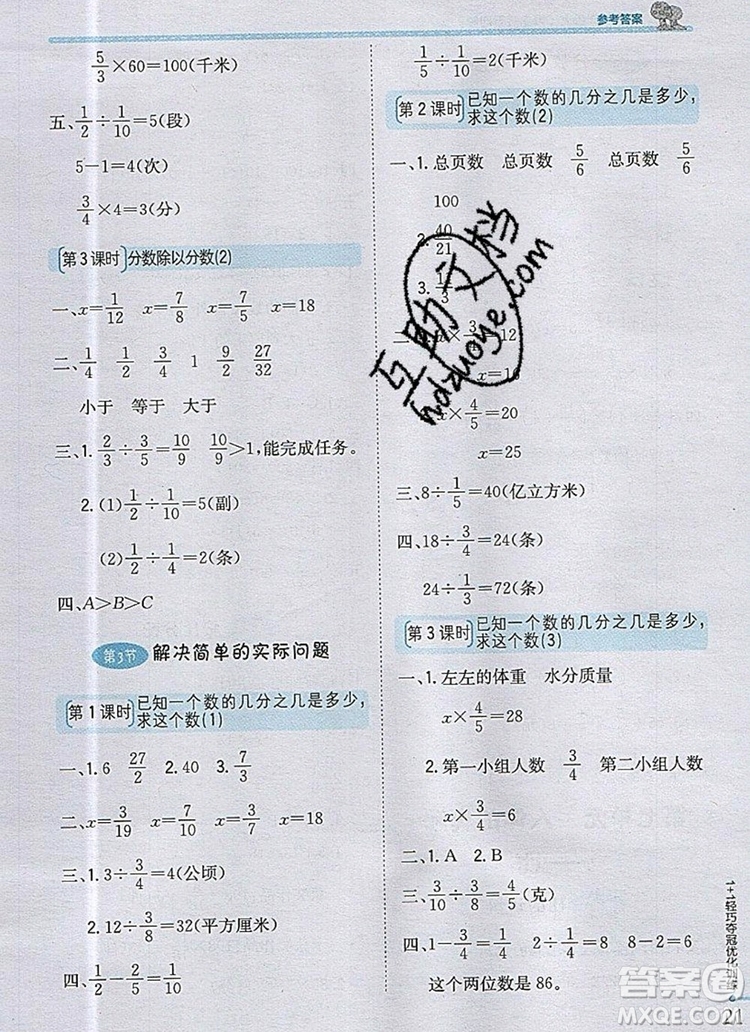 参考答案
5/3×60=100(千米)
五、1/2÷1/10=5(段)
5-1=4(次)
3/4×4=3(分)
第3课时 分数除以分数(2)
一、x=1/12 x=7/8 x=7/5 x=18
二、1/4 1/4 3/4 1 9/2 27/32
小于 等于 大于
三、1. 2/3÷3/5=10/9 10/9>1,能完成任务。
2.(1)1/2÷1/10=5(副)
(2)1/2÷1/4=2(条)
四、A>B>C
第3节 解决简单的实际问题
第1课时 已知一个数的几分之几是多少,
求这个数(1)
一、1.6 27/2 2.40 3.7/3
二、x=3/19 x=7/10 x=18
三、1.3÷3/4=4(公顷)
2.12÷3/8=32(平方厘米)
四、1/2-2/5=1/10
1/5÷1/10=2(千米)
第2课时 已知一个数的几分之几是多少,
求这个数(2)
一、1.总页数 总页数 5/6 总页数 5/6
100
2.40/21
3.
x×3/4=12
x=16
x×4/5=20
x=25
三、8÷1/5=40(亿立方米)
四、18÷3/4=24(条)
24÷1/3=72(条)
第3课时 已知一个数的几分之几是多少,
求这个数(3)
一、1.左左的体重 水分质量
x×4/5=28
2.第一小组人数 3/4 第二小组人数
x×3/4=6
二、1.A 2.B
三、3/10÷3/8=4/5(克)
四、1-3/4=1/4 2÷1/4=8 8-2=6
这个两位数是86。
1+1轻巧夺冠优化训练
21
互助文档
hdzuoye.com
答案圈
MXQE.COM